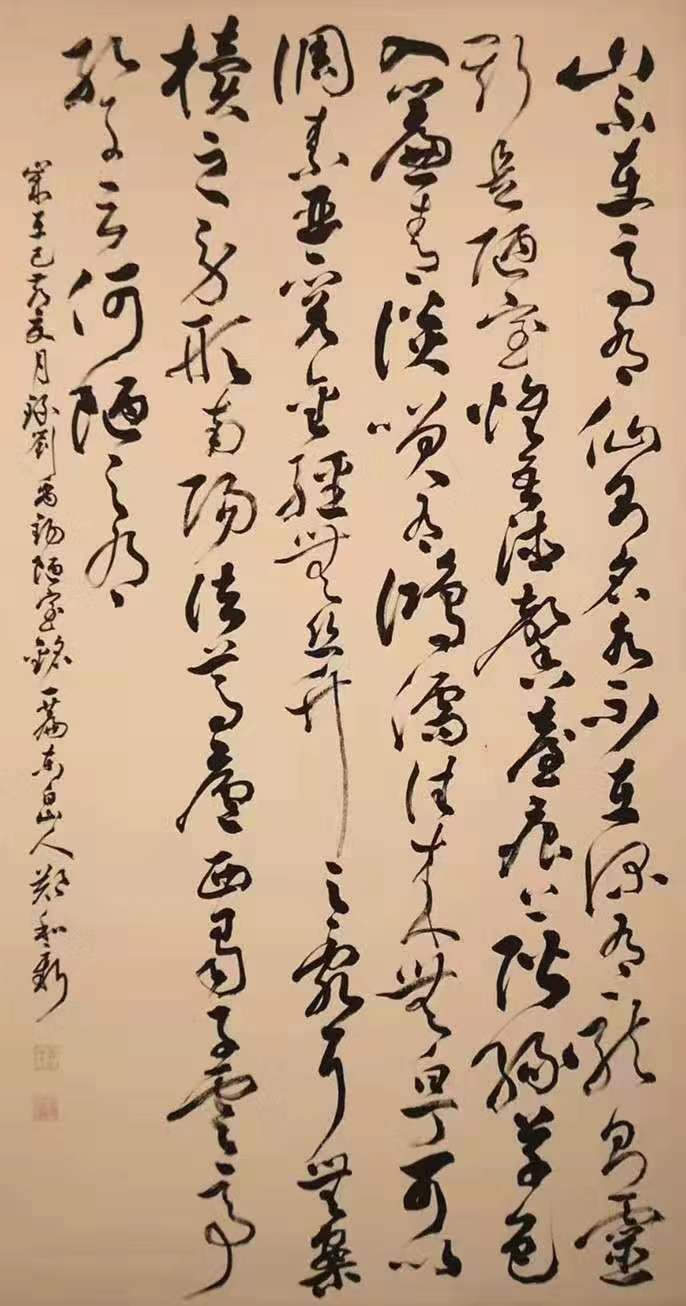 山不在高有仙則名水不在深有龍則靈
斯是陋室惟吾德馨臺痕上階緑草色
入簾青談笑有鴻儒往來無白丁可以
調素琴閱金經無絲竹之亂耳無案
牘之勞形南陽諸葛廬西蜀子雲亭
孔子云何陋之有
歲在己亥夏月録劉禹錫陋室銘一篇東白山人鄭和新